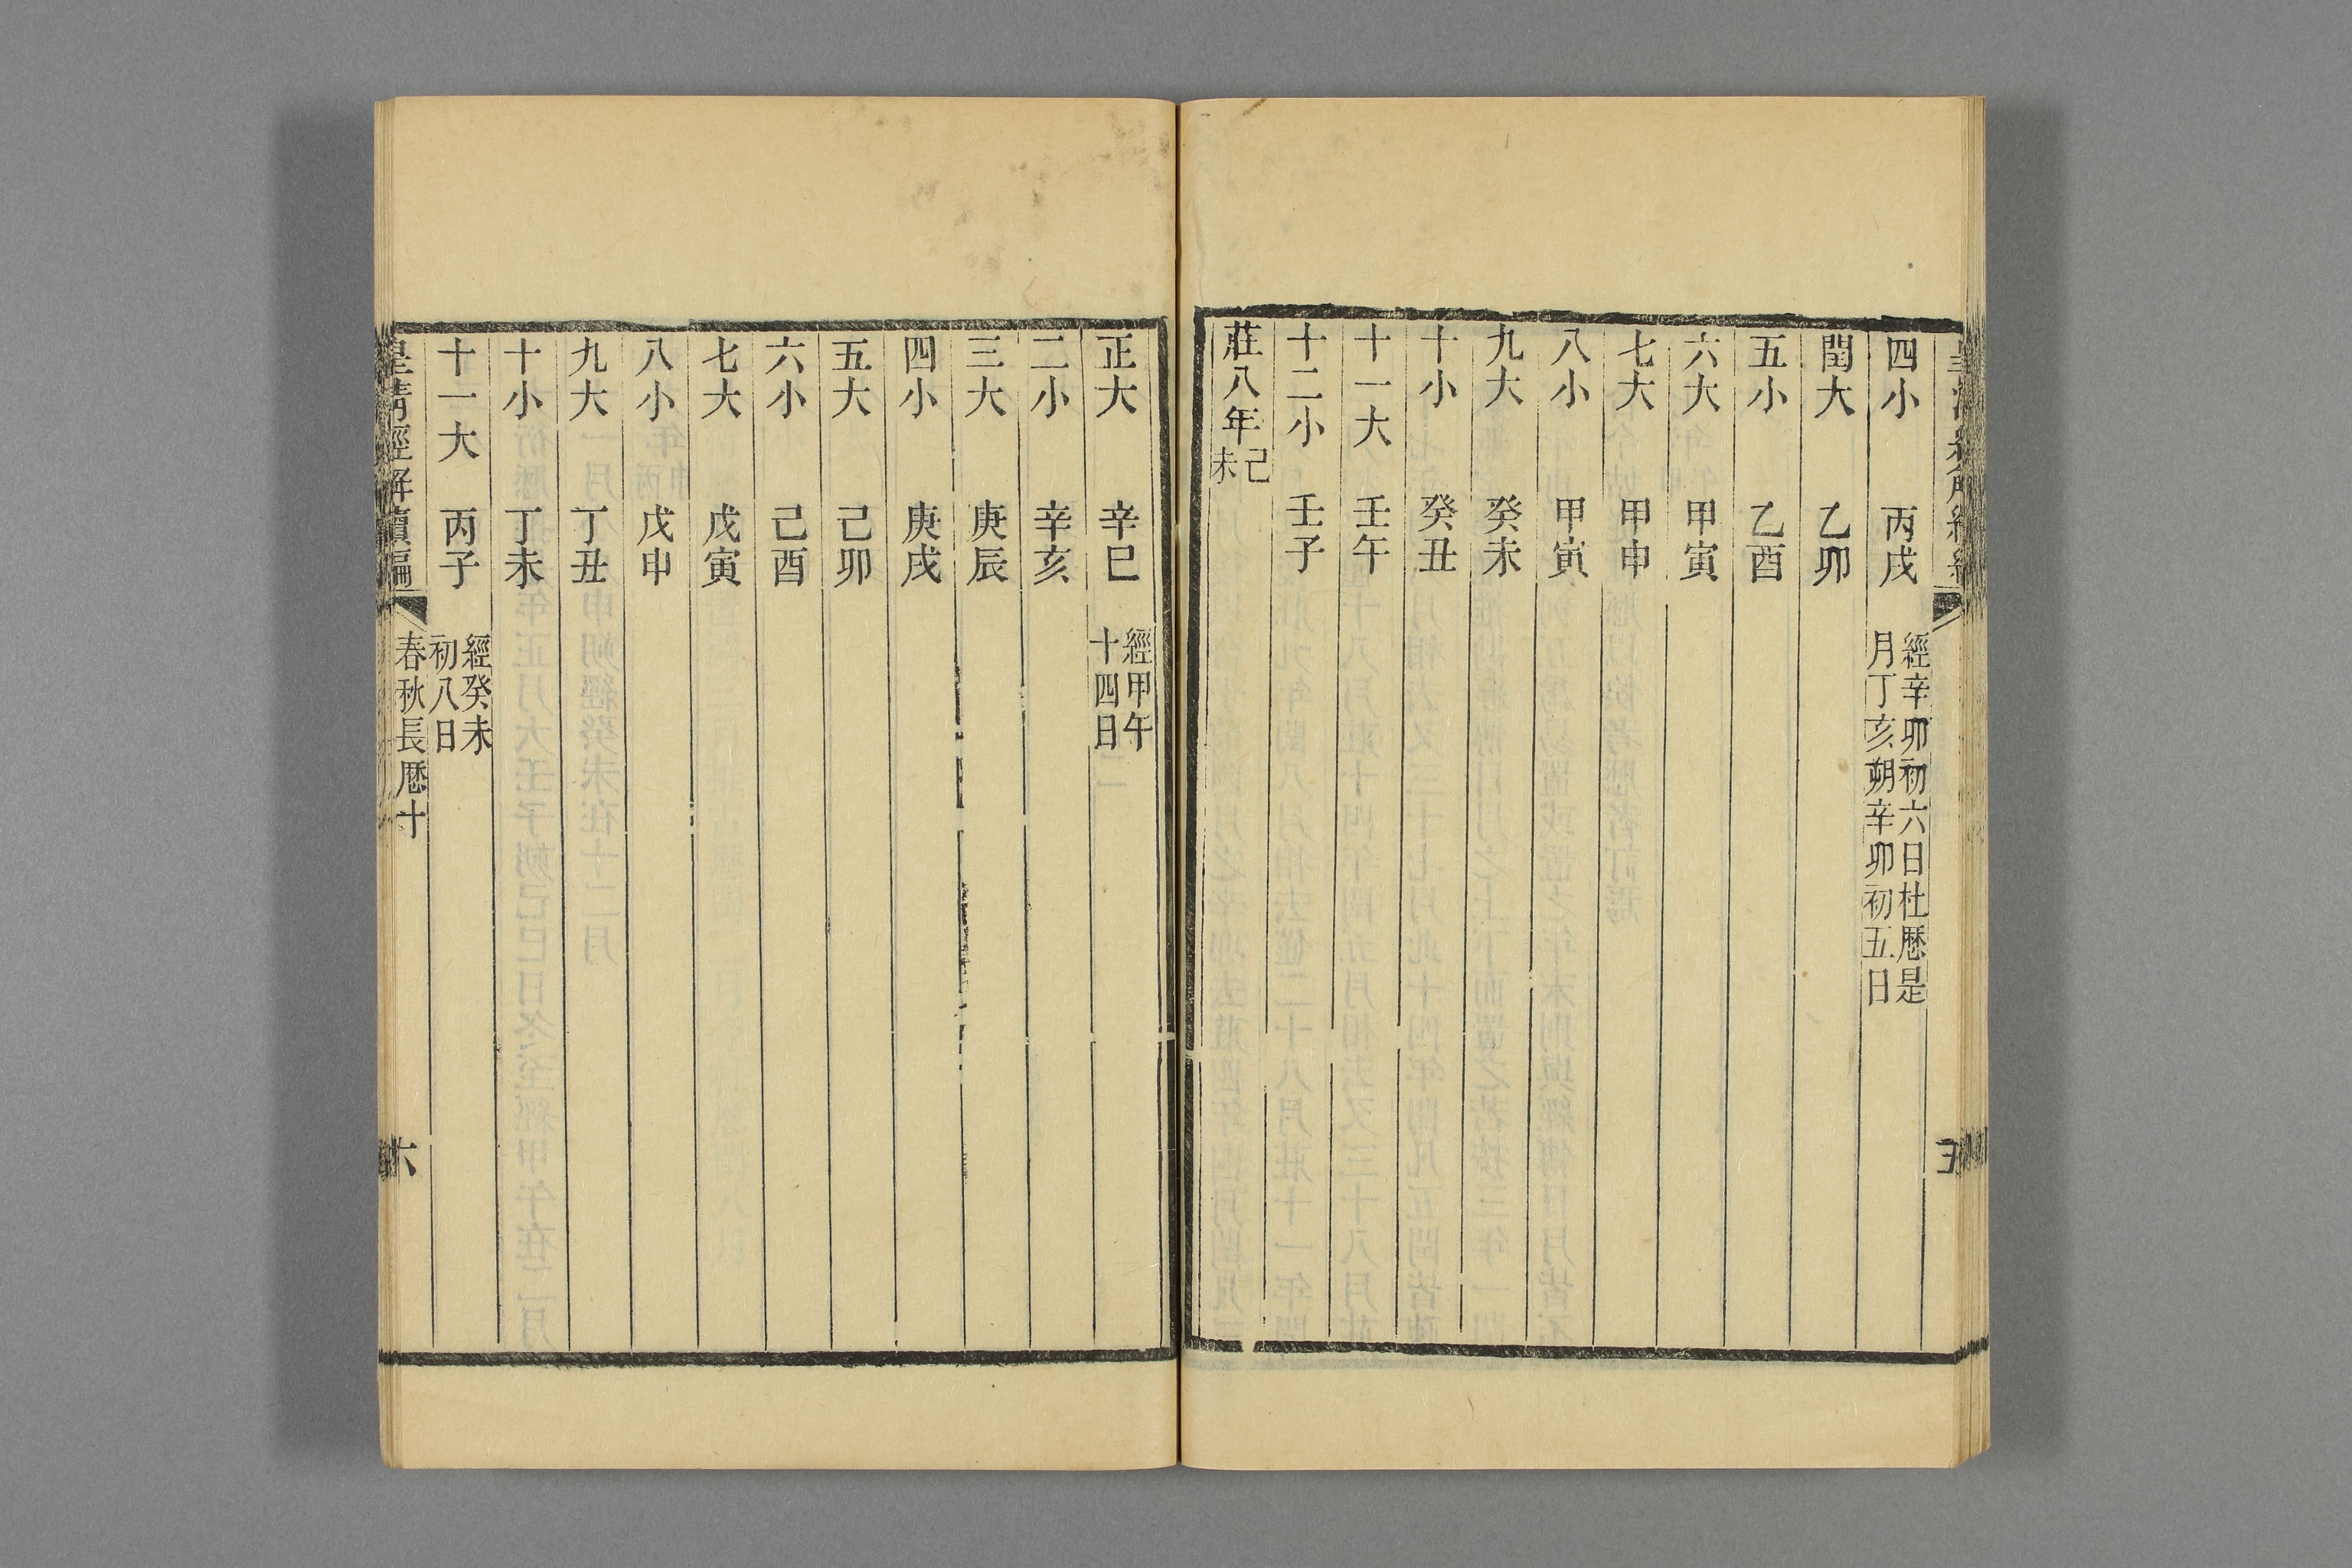 四小 丙戌 經辛卯初六日杜厯是
月丁亥朔辛卯初五日
閏大 乙卯
五小 乙酉
六大 甲寅
七大 甲申
八小 甲寅
九大 癸未
十小 癸丑
十一大 壬午
十二小 壬子
莊八年己未
正大 辛巳 經甲午
十四日
二小 辛亥
三大 庚辰
四小 庚戌
五大 己卯
六小 己酉
七大 戊寅
八小 戊申
九大 丁丑
十小 丁未
十一大 丙子 經癸未
初八日
皇清經解續編 春秋長厯十 六